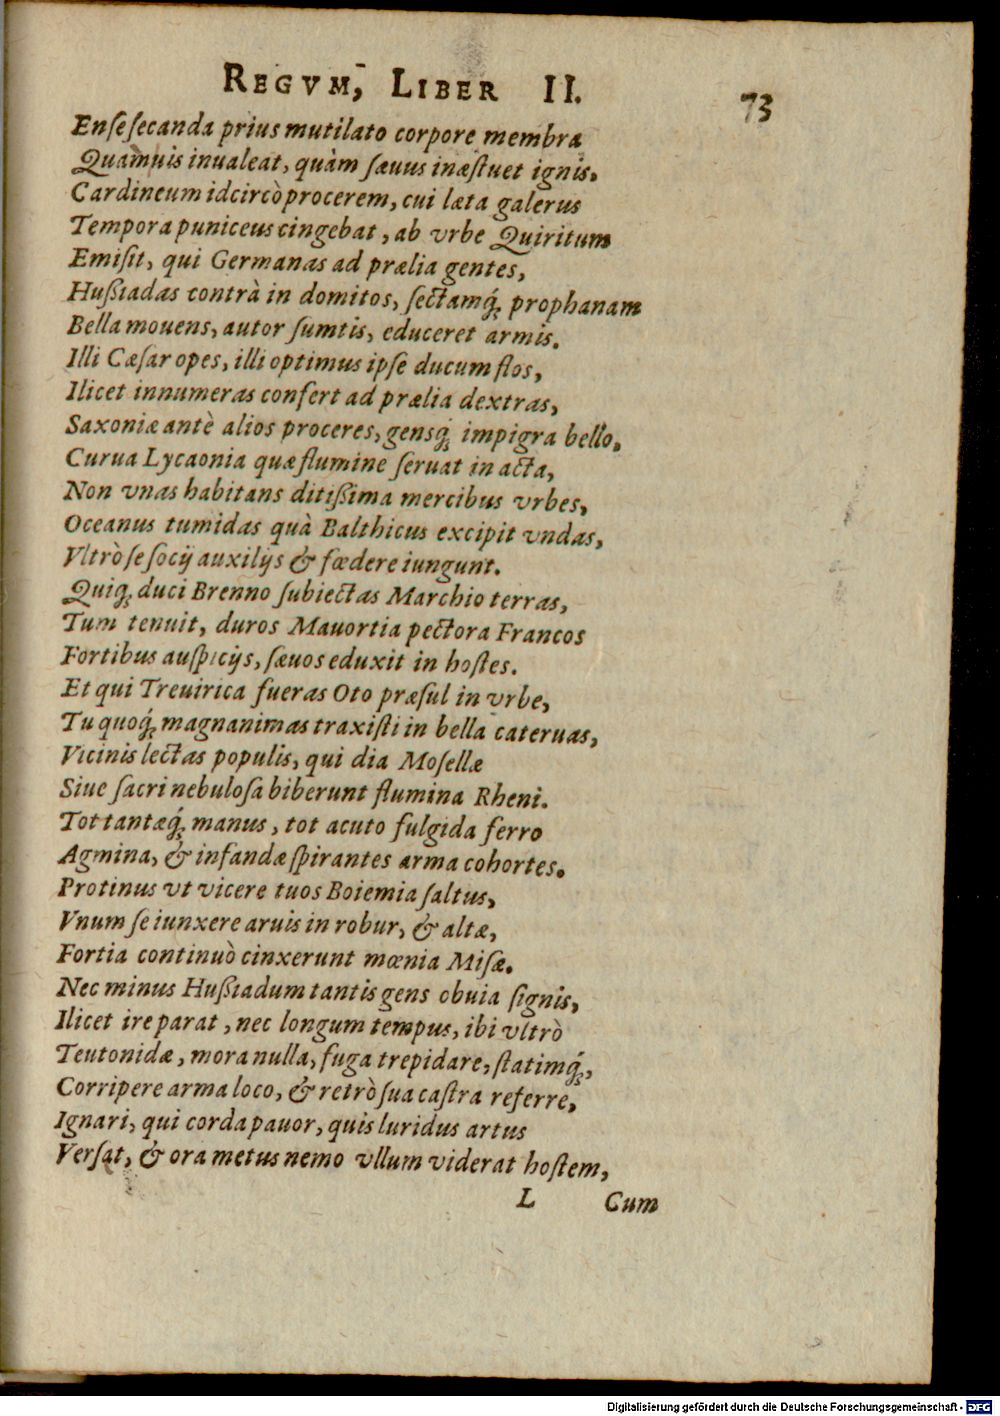 REGVM, LIBER II. 73
Enſe ſecanda prius mutilato corpore membra
Quamuis inualeat, quàm ſæuus inæſtuet ignis.
Cardineum idcircò procerem, cui læta galerus
Tempora puniceus cingebat, ab vrbe Quiritum
Emiſit, qui Germanas ad prælia gentes,
Hußiadas contrà in domitos, ſectamq́; prophanam
Bella mouens, autor ſumtis, educeret armis.
Illi Cæſar opes, illi optimus ipſe ducum flos,
Ilicet innumeras confert ad prælia dextras,
Saxoniæ antè alios proceres, gensq; impigra bello.
Curua Lycaonia quæ flumine ſeruat in acta,
Non vnas habitans ditißima mercibus vrbes,
Oceanus tumidas quà Balthicus excipit vndas,
Vltrò ſe ſocij auxilijs & fœdere iungunt.
Quiq; duci Brenno ſubiectas Marchio terras,
Tum tenuit, duros Mauortia pectora Francos
Fortibus auſpicijs, ſæuos eduxit in hoſtes.
Et qui Treuirica fueras Oto præſul in vrbe,
Tu quoq́; magnanimas traxiſti in bella cateruas,
Vicinis lectas populis, qui dia Moſellæ
Siue ſacri nebuloſa biberunt flumina Rheni.
Tot tantæq́; manus, tot acuto fulgida ferro
Agmina, & infandæ ſpirantes arma cohortes.
Protinus vt vicere tuos Boiemia ſaltus,
Vnum ſe iunxere aruis in robur, & altæ,
Fortia continuò cinxerunt mœnia Miſæ.
Nec minus Hußiadum tantis gens obuia ſignis,
Ilicet ire parat, nec longum tempus, ibi vltrò
Teutonidæ, mora nulla, fuga trepidare, ſtatimq́;,
Corripere arma loco, & retrò ſua caſtra referre,
Ignari, qui corda pauor, quis luridus artus
Verſat, & ora metus nemo vllum viderat hoſtem,
L Cum
Digitalisierung gefördert durch die Deutsche Forschungsgemeinschaft - DFG